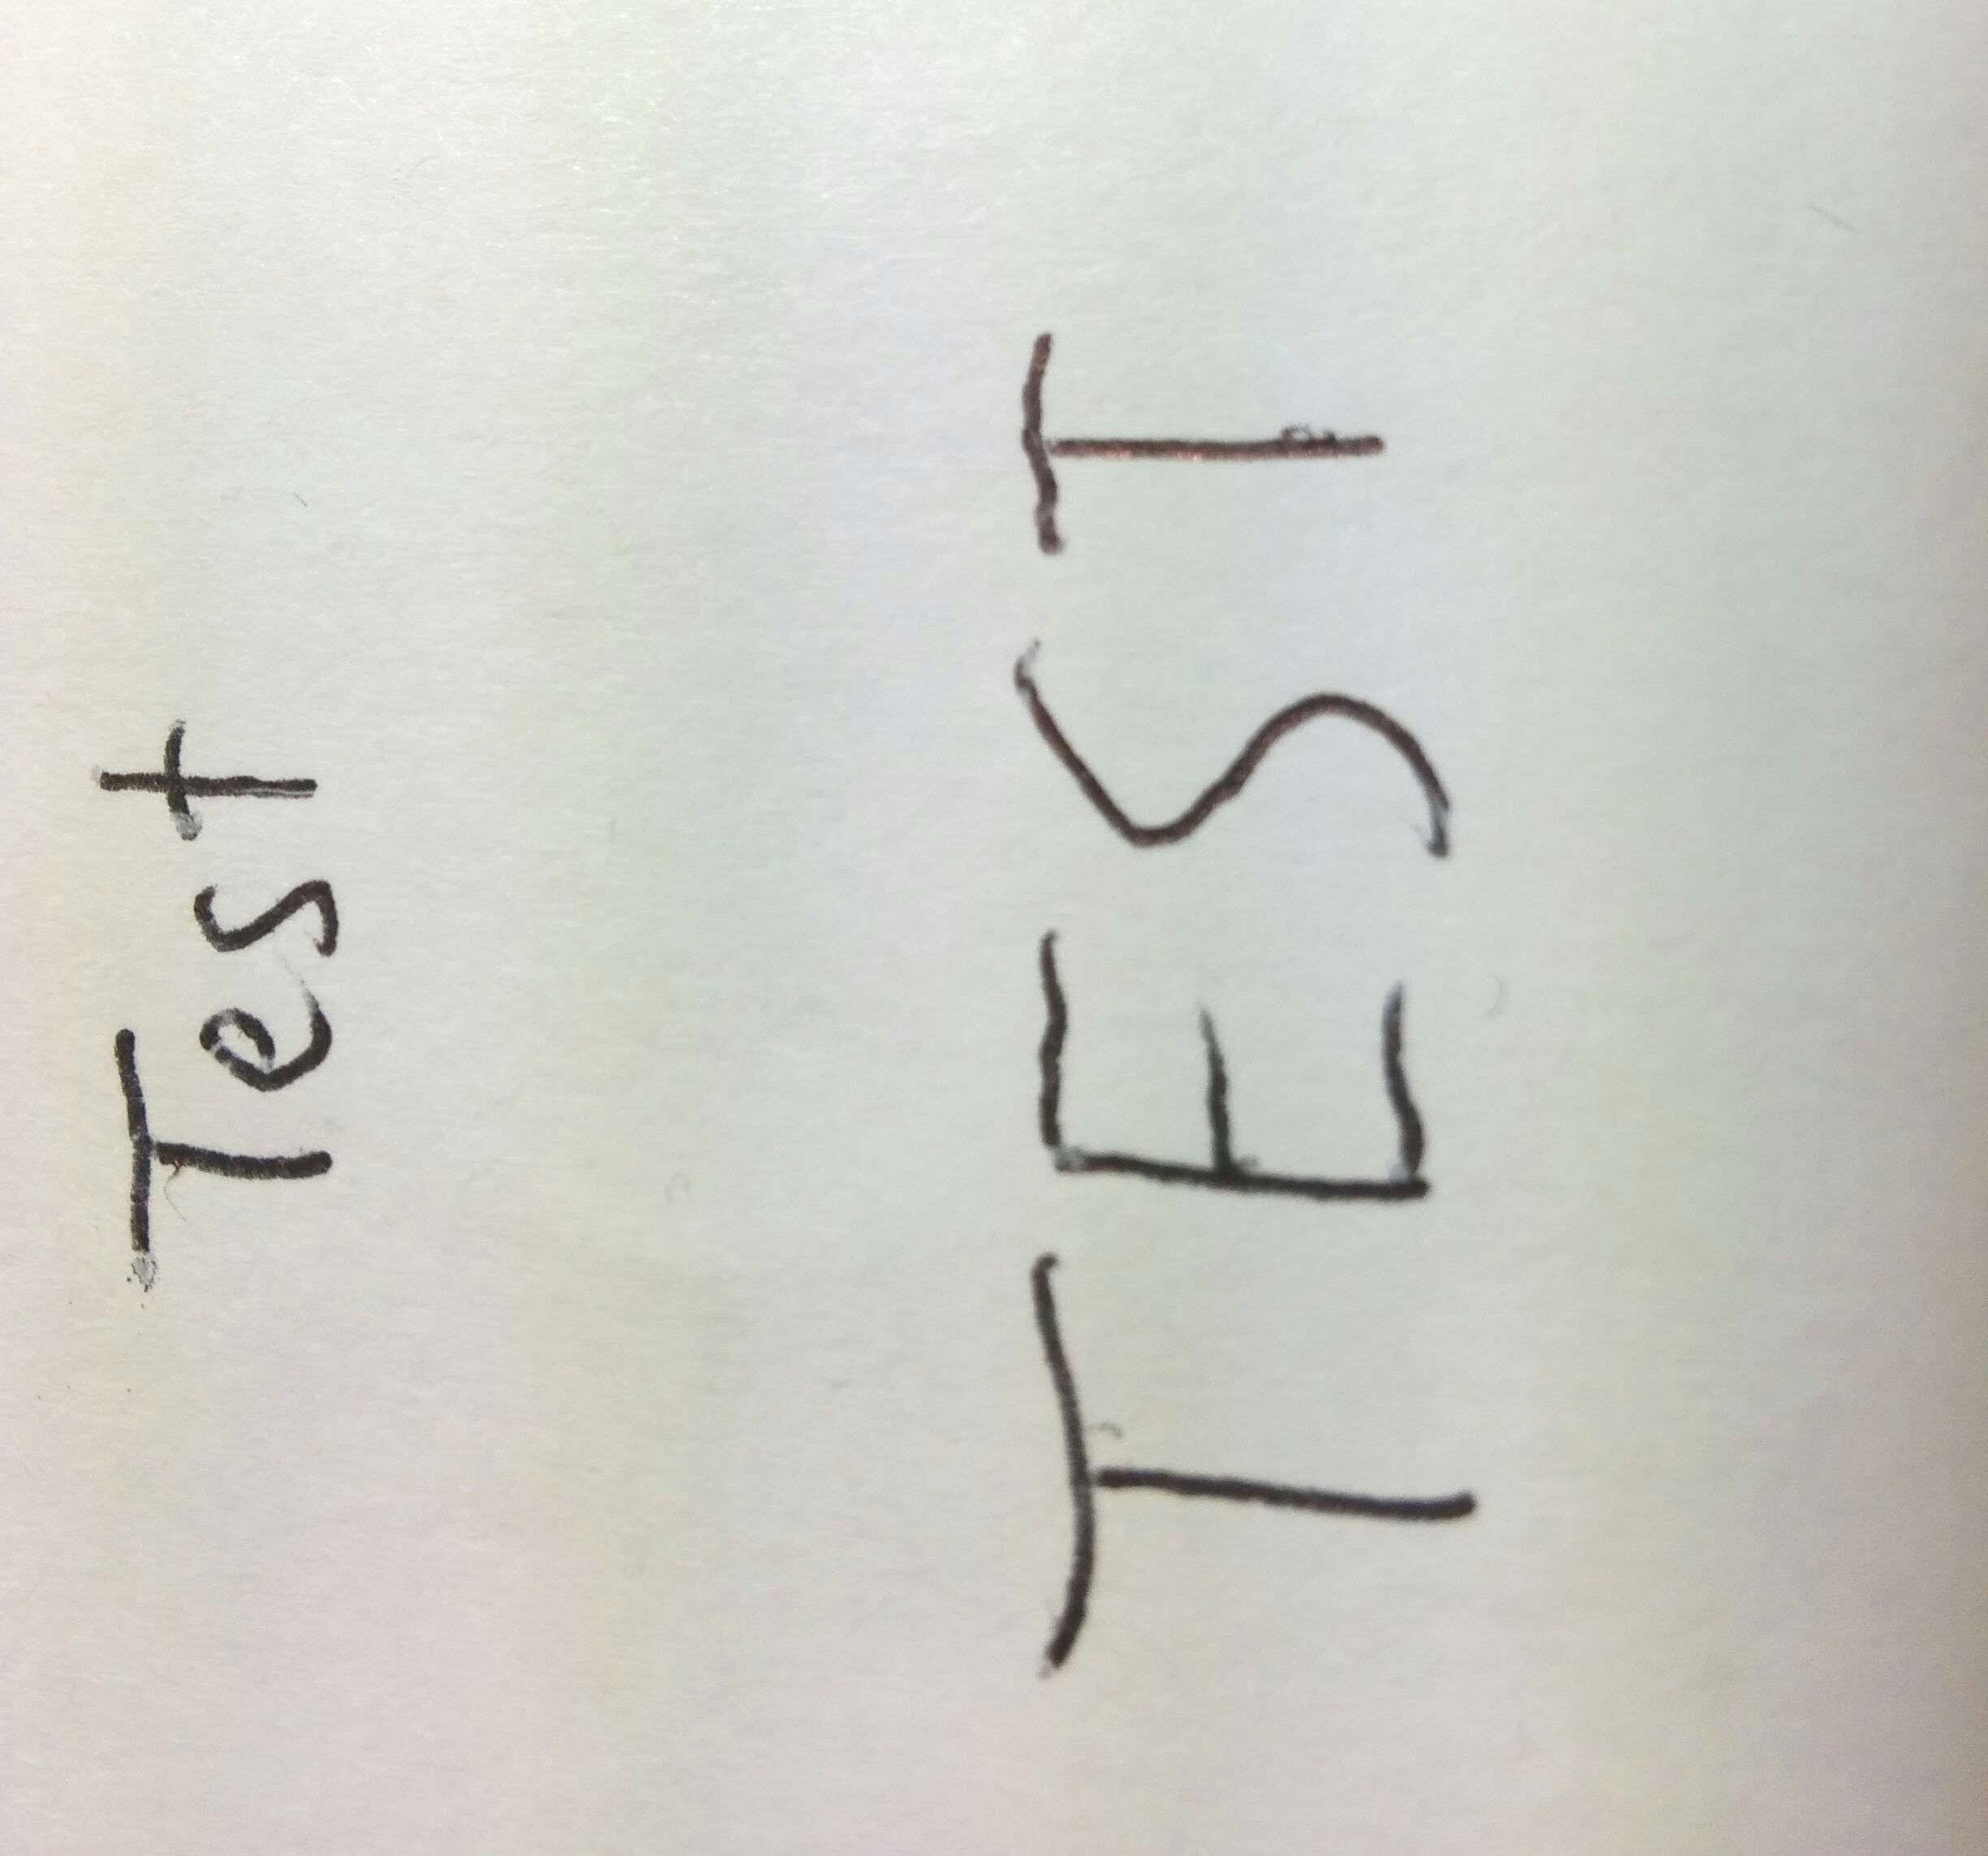 Test
TEST